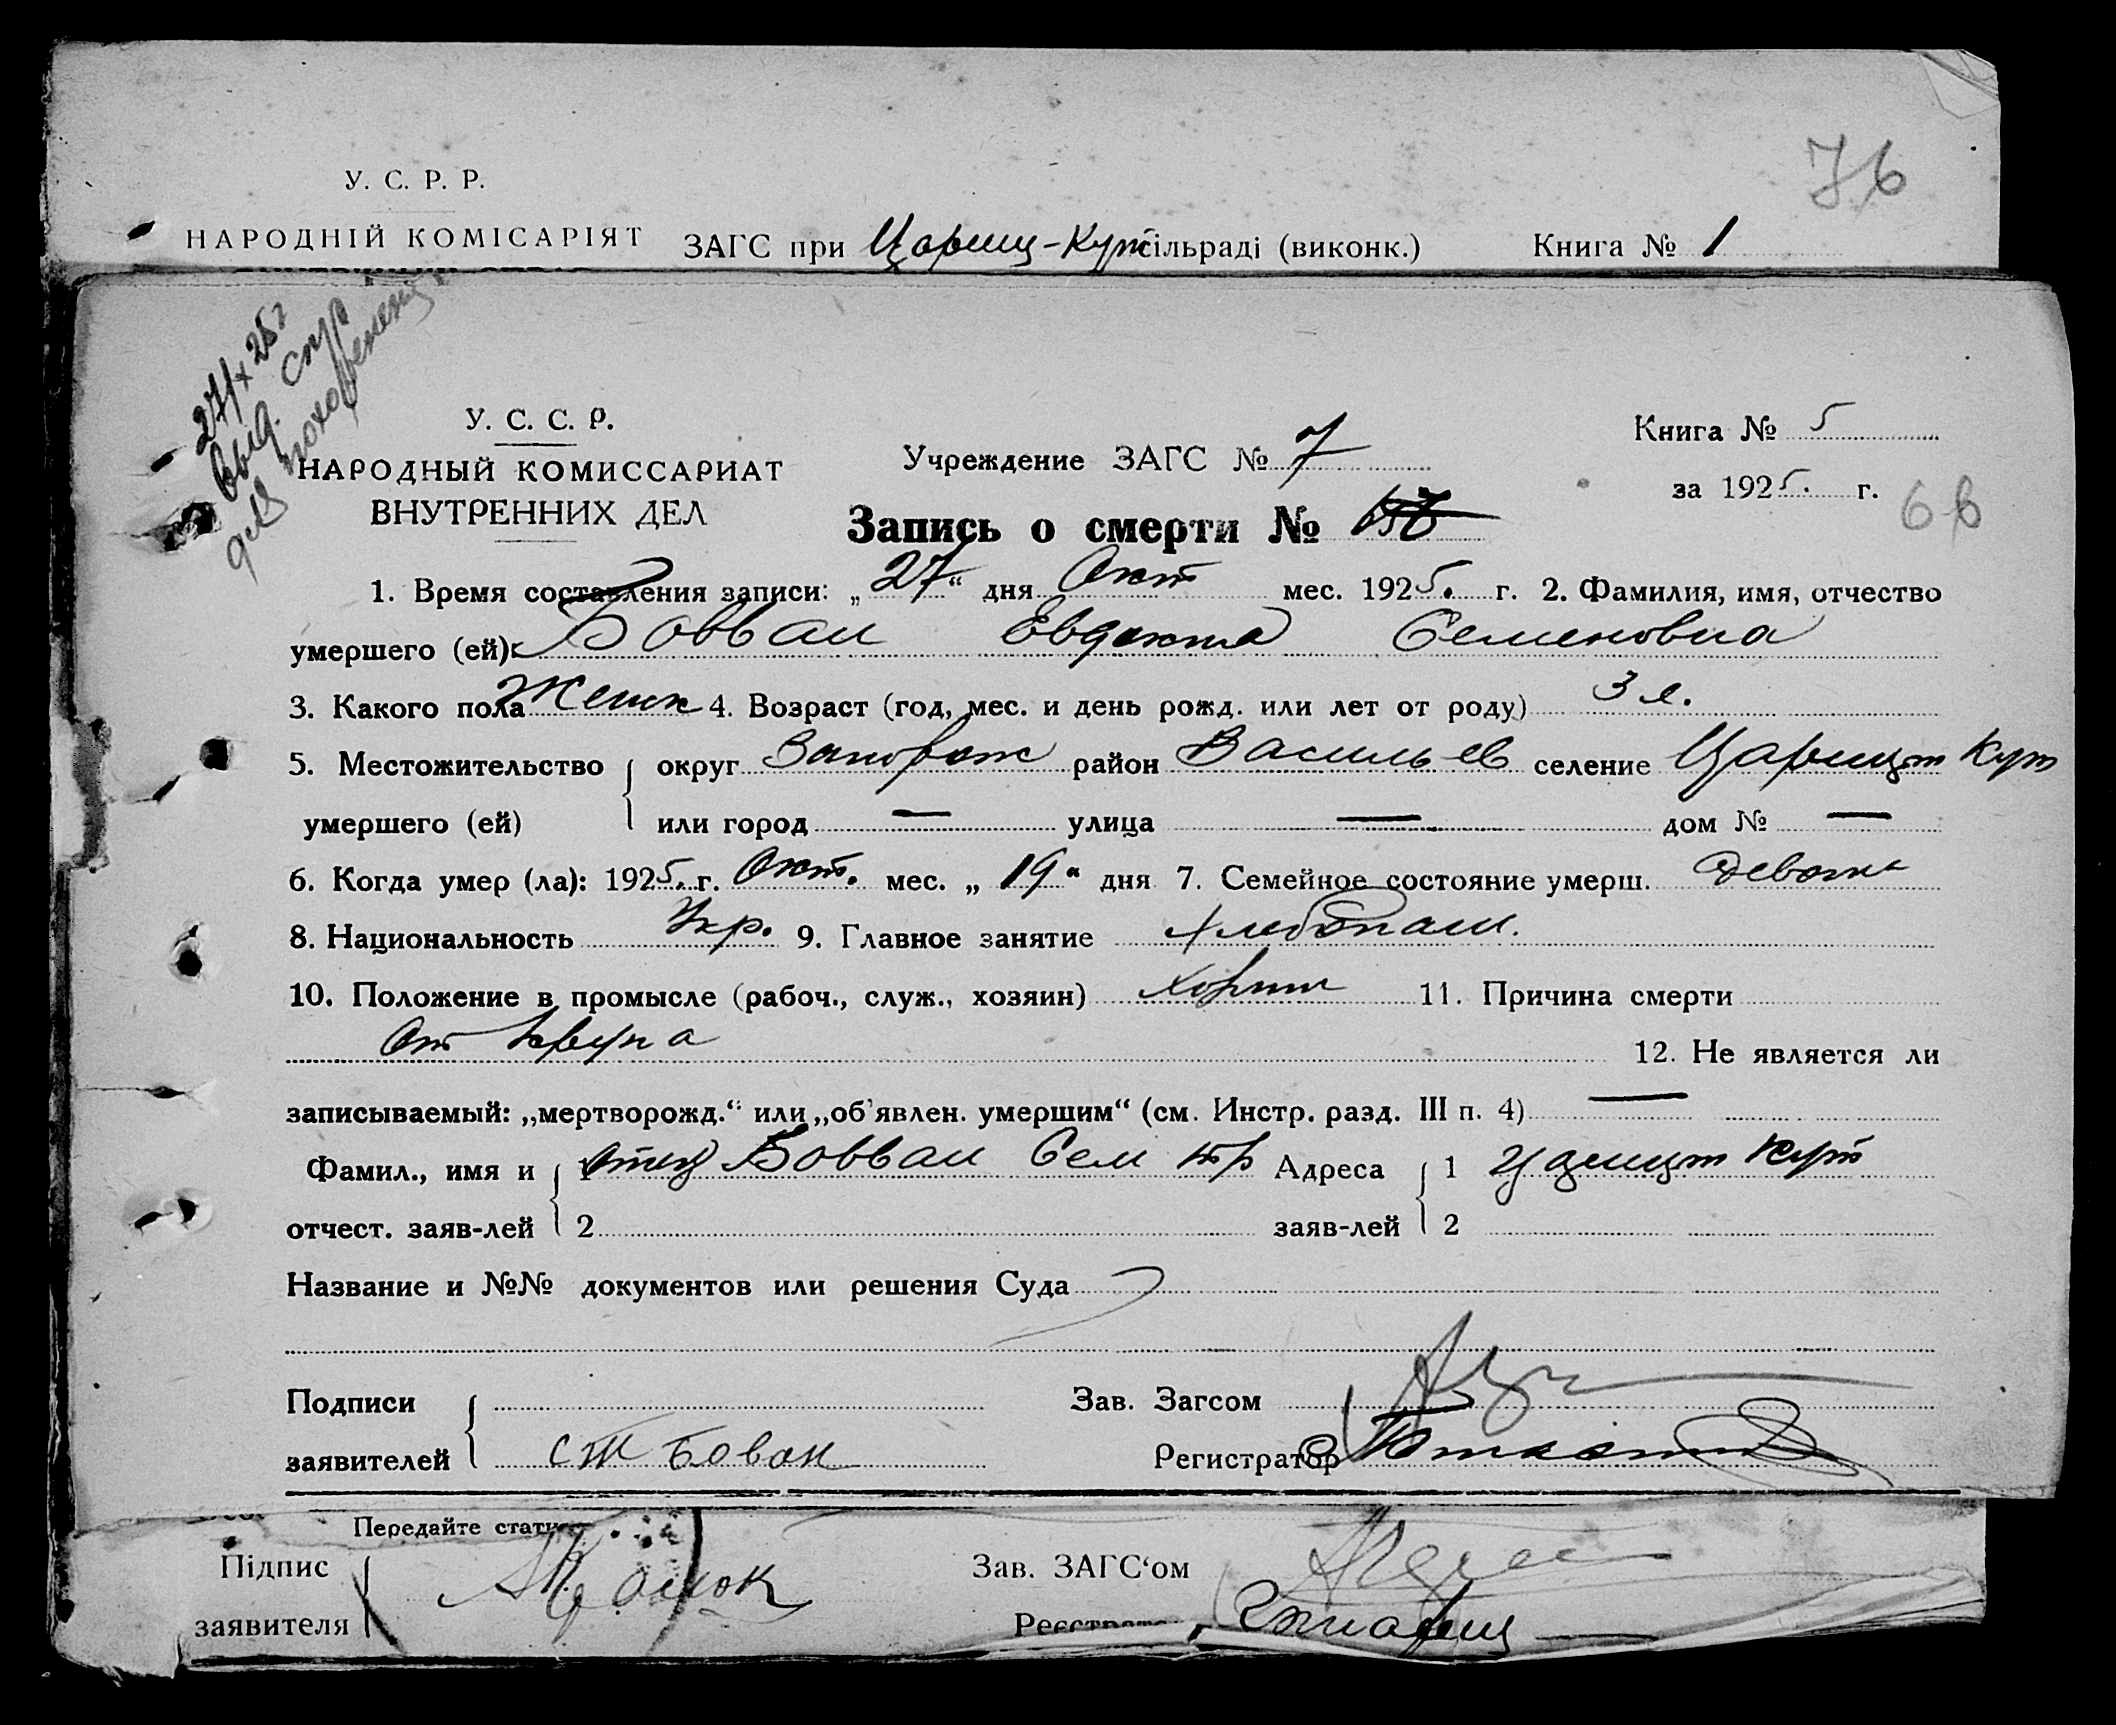 76
У. С. Р. Р.
НАРОДНІЙ КОМІСАРІЯТ ЗАГС при Цариц-Кут сільраді (виконк.) Книга № 1
27/X 25г
выд. спр
для похоронения
У. С. С. Р.
НАРОДНЫЙ КОМИССАРИАТ
ВНУТРЕННИХ ДЕЛ
Учреждение ЗАГС № 7
Книга № 5
за 1925. г.
Запись о смерти №
1. Время составления записи: „27“ дня Окт мес. 1925. г. 2. Фамилия, имя, отчество
умершего (ей): Бовван Евдокия Семеновна
3. Какого пола Женск 4. Возраст (год, мес. и день рожд. или лет от роду) 3 л.
5. Местожительство округ Запорож район Васильев селение Царицт Кут
умершего (ей) или город — улица — дом № —
6. Когда умер (ла): 1925. г. Окт. мес. „19“ дня 7. Семейное состояние умерш. девочка
8. Национальность Укр. 9. Главное занятие Хлебопаш.
10. Положение в промысле (рабоч., служ., хозяин) 11. Причина смерти
От Крупа 12. Не является ли
записываемый: „мертворожд.“ или „об'явлен. умершим“ (см. Инстр. разд. III п. 4) —
Фамил., имя и 1 отец Бовван Сем Адреса 1 Царицт Кут
отчест. заяв-лей 2 заяв-лей 2
Название и №№ документов или решения Суда
Подписи Зав. Загсом
заявителей СТ Бован Регистратор
Передайте стати
Підпис Зав. ЗАГС'ом
заявителя Реєстрато